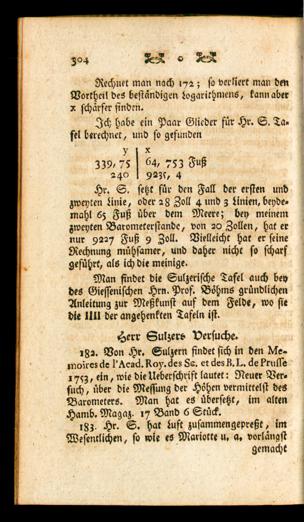 304
Rechnet man nach 172; so verliert man den
Vortheil des beständigen Logarithmens, kann aber
x schärfer finden.
Ich habe ein Paar Glieder für Hr. S. Ta-
fel berechnet, und so gefunden
y | x
339, 75 | 64, 753 Fuß
240 | 9235, 4
Hr. S. setzt für den Fall der ersten und
zweyten Linie, oder 28 Zoll 4 und 3 Linien, beyde-
mahl 65 Fuß über dem Meere; bey meinem
zweyten Barometerstande, von 20 Zollen, hat er
nur 9227 Fuß 9 Zoll. Vielleicht hat er seine
Rechnung mühsamer, und daher nicht so scharf
geführt, als ich die meinige.
Man findet die Sulzerische Tafel auch bey
des Giessenischen Hrn. Prof. Böhms gründlichen
Anleitung zur Meßkunst auf dem Felde, wo sie
die IIII der angehenkten Tafeln ist.
Herr Sulzers Versuche.
182. Von Hr. Sulzern findet sich in den Me-
moires de l'Acad. Roy. des Sc. et des B. L. de Prusse
1753, ein, wie die Ueberschrift lautet: Neuer Ver-
such, über die Messung der Höhen vermittelst des
Barometers. Man hat es übersetzt, im alten
Hamb. Magaz. 17 Band 6 Stück.
183. Hr. S. hat Luft zusammengepreßt, im
Wesentlichen, so wie es Mariotte u. a. vorlängst
gemacht